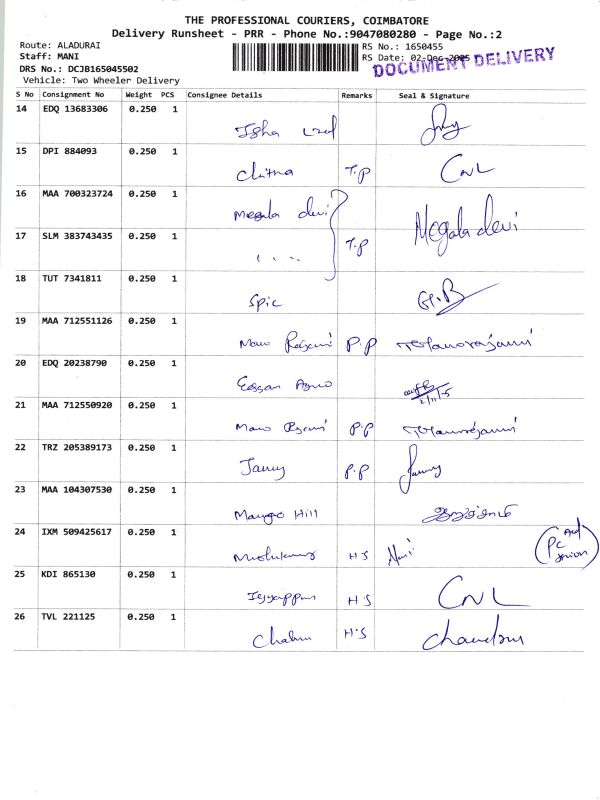 THE PROFESSIONAL COURIERS, COIMBATORE
Delivery Runsheet - PRR - Phone No.:9047080280 - Page No.:2
Route: ALADURAI
Staff: MANI
DRS No.: DCJB165045502
Vehicle: Two Wheeler Delivery
RS No.: 1650455
RS Date: 02-Dec-2025
DOCUMENT DELIVERY
S No Consignment No Weight PCS Consignee Details Remarks Seal & Signature
14 EDQ 13683306 0.250 1
Isha
15 DPI 884093 0.250 1
Chitna T.P CNL
16 MAA 700323724 0.250 1
Megala devi Megala devi
17 SLM 383743435 0.250 1
T.P
18 TUT 7341811 0.250 1
Spic
19 MAA 712551126 0.250 1
Mano Rajani P.P
20 EDQ 20238790 0.250 1
21 MAA 712550920 0.250 1
Mano P.P
22 TRZ 205389173 0.250 1
P.P
23 MAA 104307530 0.250 1
Mango Hill
24 IXM 509425617 0.250 1
H.S
25 KDI 865130 0.250 1
Iyyappan H.S CNL
26 TVL 221125 0.250 1
H.S